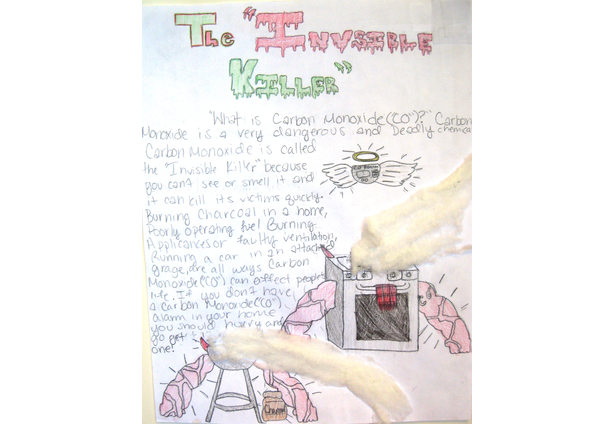 The "Invsible
Killer"
"What is Carbon Monoxide("CO")?" Carbon
Monoxide is a very dangerous and Deadly chemical
Carbon Monoxide is called
the "Invisible Killer" because
you can't see or smell it and
it can kill its victims quickly.
Burning Charcoal in a home,
Poorly operating fuel Burning
Applicances or faulty ventilation,
Running a car in an attached
grage, are all ways Carbon
Monoxide("CO") can effect peoples
life. If you don't have
a Carbon Monoxide("CO")
alarm in your home
you should hurry and
go get
one!